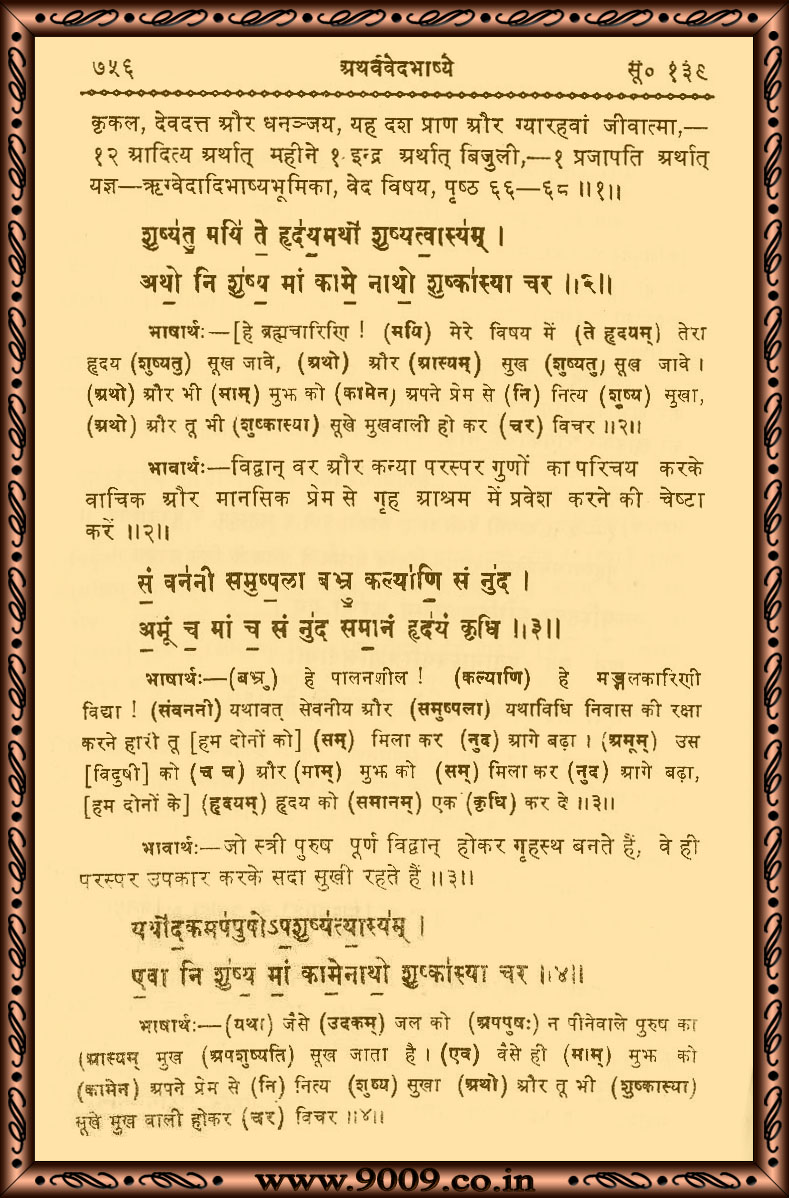 ७५६ अथर्ववेदभाष्ये सू० १३९
कृकल, देवदत्त और धनञ्जय, यह दश प्राण और ग्यारहवां जीवात्मा,—
१२ आदित्य अर्थात् महीने १ इन्द्र अर्थात् बिजुली,—१ प्रजापति अर्थात्
यज्ञ—ऋग्वेदादिभाष्यभूमिका, वेद विषय, पृष्ठ ६६—६८ ॥१॥
शुष्य॑तु॒ मयि॑ ते॒ हृद॑य॒मथो॑ शुष्यत्वा॒स्य॑म् ।
अथो॒ नि शु॑ष्य॒ मां कामे॒ नाथो॒ शुष्का॑स्या चर ॥२॥
भाषार्थः—[हे ब्रह्मचारिणि ! (मयि) मेरे विषय में (ते हृदयम्) तेरा
हृदय (शुष्यतु) सूख जावे, (अथो) और (आस्यम्) मुख (शुष्यतु) सूख जावे ।
(अथो) और भी (माम्) मुझ को (कामेन) अपने प्रेम से (नि) नित्य (शुष्य) सुखा,
(अथो) और तू भी (शुष्कास्या) सूखे मुखवाली हो कर (चर) विचर ॥२॥
भावार्थः—विद्वान् वर और कन्या परस्पर गुणों का परिचय करके
वाचिक और मानसिक प्रेम से गृह आश्रम में प्रवेश करने की चेष्टा
करें ॥२॥
सं॒ वन॑नी समुष्प॒ला बभ्रु॒ कल्या॑णि॒ सं नु॑द ।
अ॒मूं च॒ मां च॒ सं नु॑द समा॒नं हृद॑यं कृधि ॥३॥
भाषार्थः—(बभ्रु) हे पालनशील ! (कल्याणि) हे मङ्गलकारिणी
विद्या ! (संवननी) यथावत् सेवनीय और (समुष्पला) यथाविधि निवास की रक्षा
करने हारी तू [हम दोनों को] (सम्) मिला कर (नुद) आगे बढ़ा । (अमूम्) उस
[विदुषी] को (च च) और (माम्) मुझ को (सम्) मिला कर (नुद) आगे बढ़ा,
[हम दोनों के] (हृदयम्) हृदय को (समानम्) एक (कृधि) कर दे ॥३॥
भावार्थः—जो स्त्री पुरुष पूर्ण विद्वान् होकर गृहस्थ बनते हैं, वे ही
परस्पर उपकार करके सदा सुखी रहते हैं ॥३॥
यथो॑द॒कमप॑पुषोऽप॒शुष्य॑त्या॒स्य॑म् ।
ए॒वा नि शु॑ष्य॒ मां कामे॒नाथो॒ शुष्का॑स्या चर ॥४॥
भाषार्थः—(यथा) जैसे (उदकम्) जल को (अपपुषः) न पीनेवाले पुरुष का
(आस्यम् मुख (अपशुष्यति) सूख जाता है । (एव) वैसे ही (माम्) मुझ को
(कामेन) अपने प्रेम से (नि) नित्य (शुष्य) सुखा (अथो) और तू भी (शुष्कास्या)
सूखे मुख वाली होकर (चर) विचर ॥४॥
www.9009.co.in